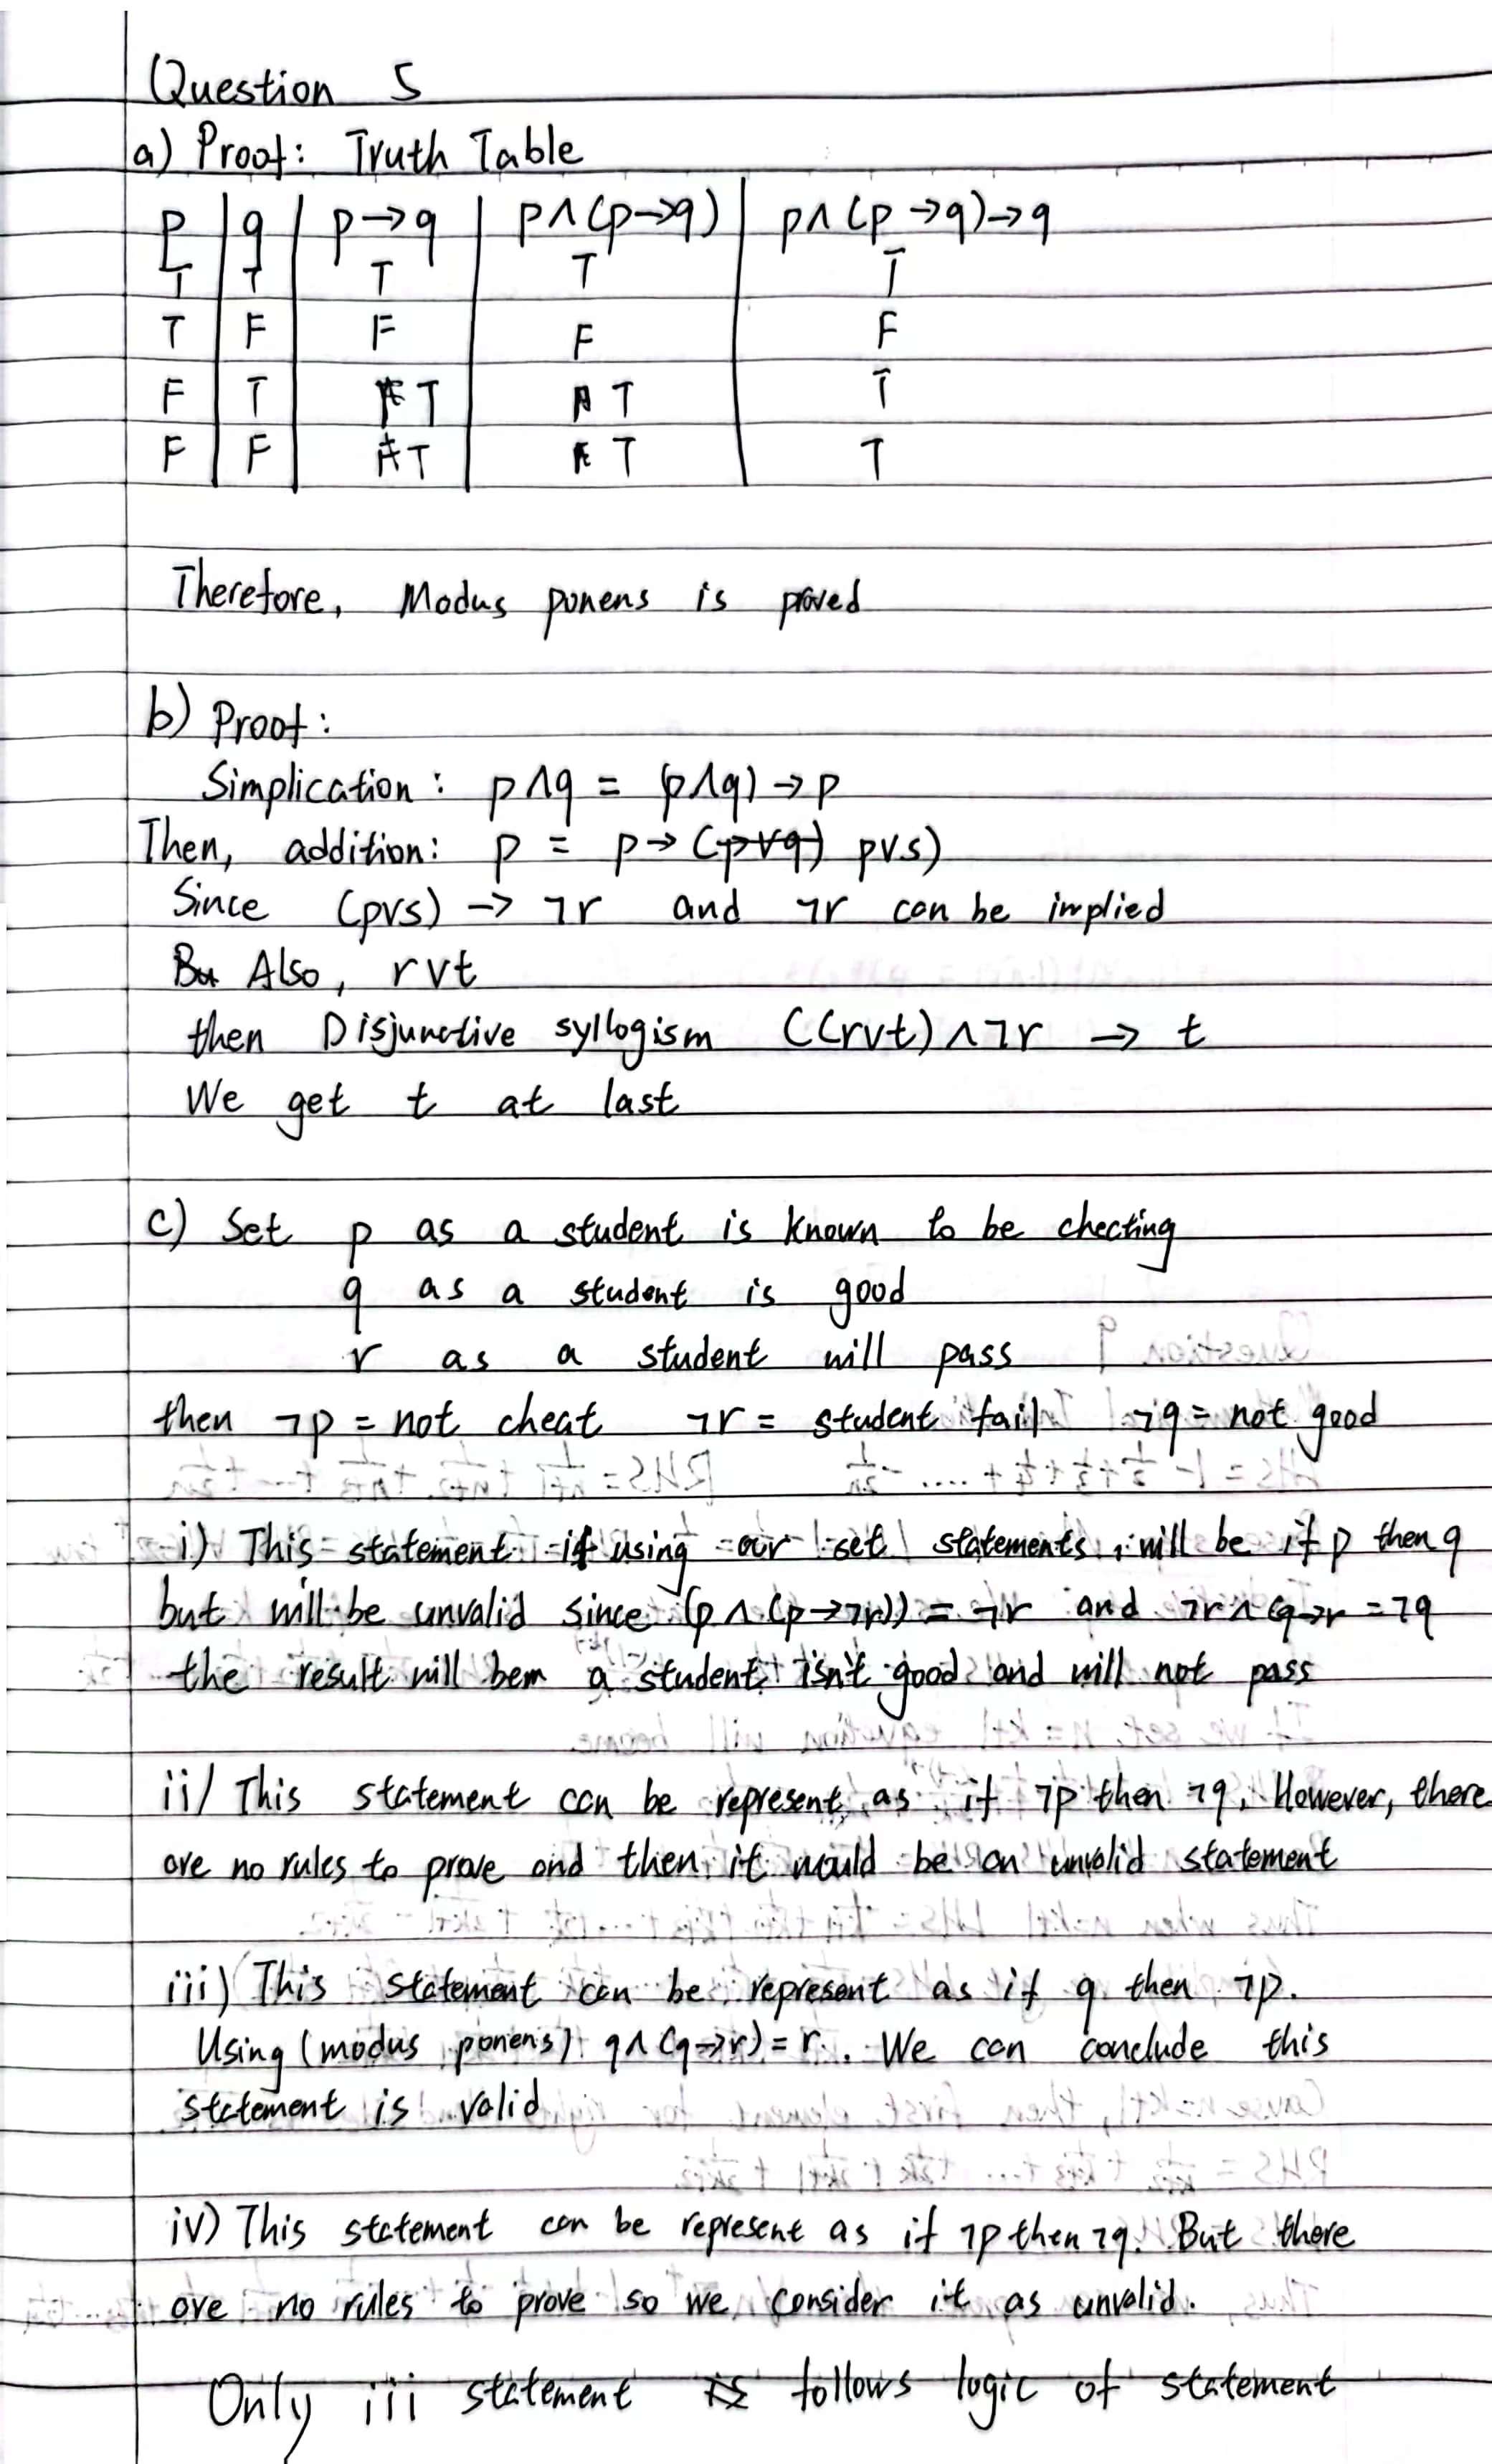 Question 5
a) Proof: Truth Table
p | q | p→q | p∧(p→q) | p∧(p→q)→q
T T T T T
T F F F F
F T T T T
F F T T T
Therefore, Modus ponens is proved
b) Proof:
Simplication: p∧q = (p∧q)→p
Then, addition: p = p→(p∨q) p∨s)
Since (p∨s) → ¬r and ¬r can be implied
Bu Also, r∨t
then Disjunctive syllogism ((r∨t)∧¬r → t
We get t at last
c) Set p as a student is known to be checting
q as a student is good
r as a student will pass
then ¬p = not cheat ¬r = student fail ¬q = not good
i) This statement if using our set statements, will be if p then q
but will be unvalid since (p∧(p→¬r)) = ¬r and ¬r∧(q→r = ¬q
the result will bem a student isn't good and will not pass
ii) This statement can be represent as if ¬p then ¬q. However, there
are no rules to prove and then it would be an unvalid statement
iii) This statement can be represent as if q then ¬p.
Using (modus ponens) q∧(q→r) = r. We can conclude this
statement is valid
iv) This statement can be represent as if ¬p then ¬q. But there
are no rules to prove so we consider it as unvalid.
Only iii statement is follows logic of statement